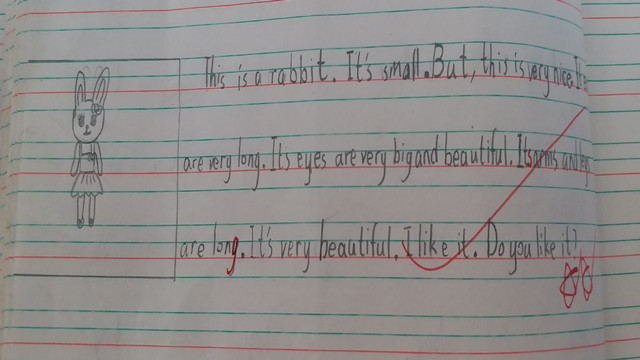 This is a rabbit. It's small. But, this is very nice.
are very long. It's eyes are very big and beautiful. Its arms and
are long. It's very beautiful. I like it. Do you like it?